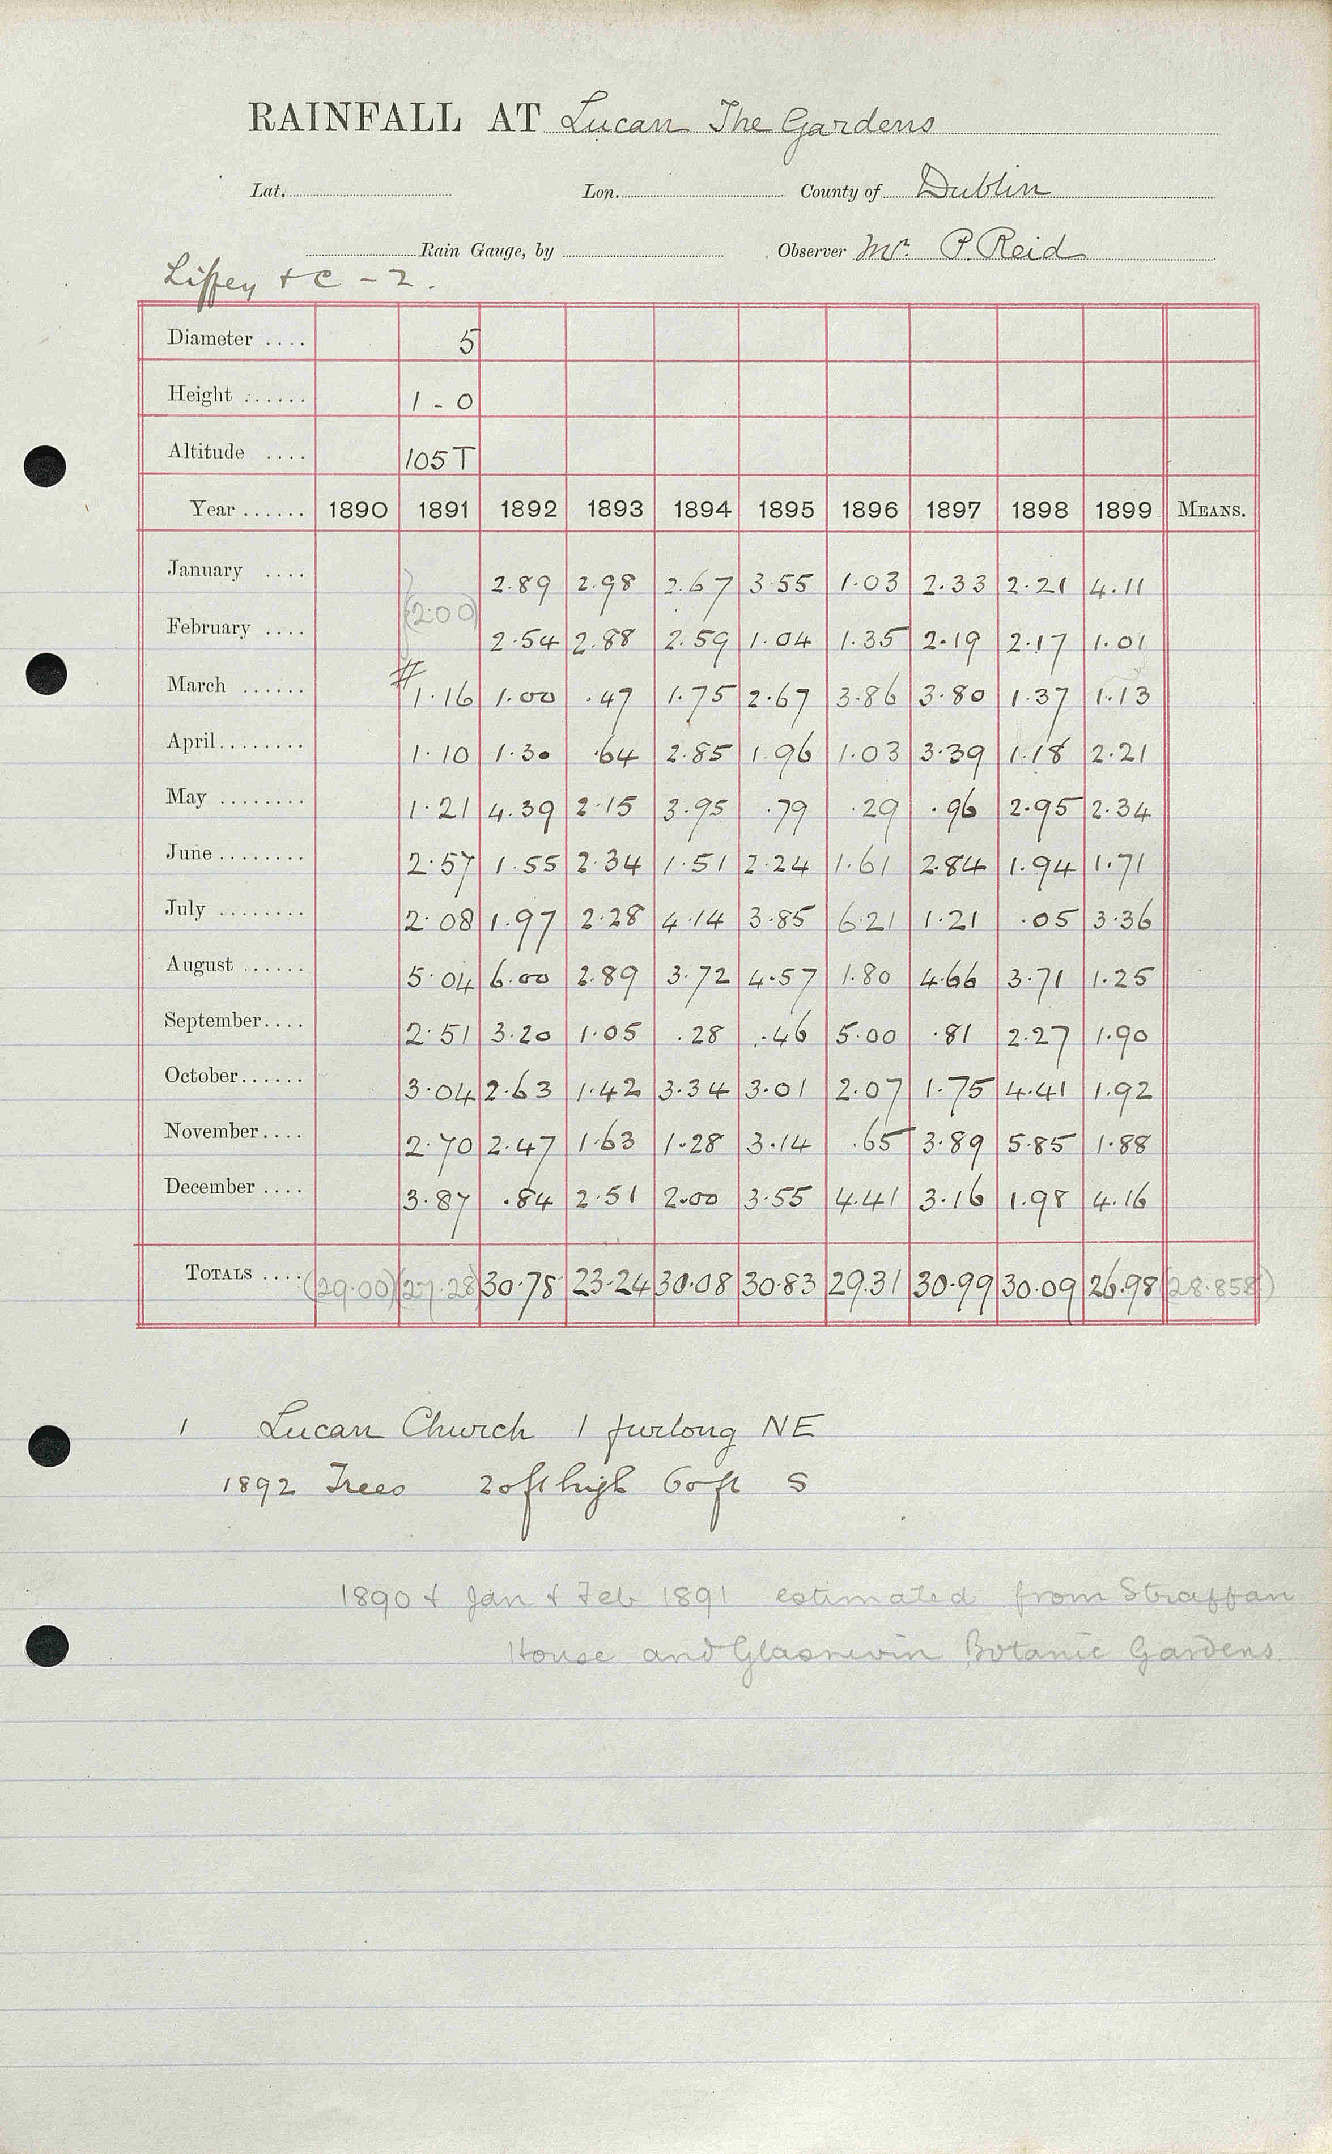 RAINFALL AT Lucan The Gardens
Lat. Lon. County of Dublin
Rain Gauge, by Observer Mr. P. Reid
Liffey & C - 2.
Diameter .... 5
Height ...... 1 - 0
Altitude .... 105 T
Year ...... 1890 1891 1892 1893 1894 1895 1896 1897 1898 1899 MEANS.
January .... 2.89 2.98 2.67 3.55 1.03 2.33 2.21 4.11
(2.00)
February .... 2.54 2.88 2.59 1.04 1.35 2.19 2.17 1.01
March ...... # 1.16 1.00 .47 1.75 2.67 3.86 3.80 1.37 1.13
April........ 1.10 1.30 .64 2.85 1.96 1.03 3.39 1.18 2.21
May ........ 1.21 4.39 2.15 3.95 .79 .29 .96 2.95 2.34
June ........ 2.57 1.55 2.34 1.51 2.24 1.61 2.84 1.94 1.71
July ........ 2.08 1.97 2.28 4.14 3.85 6.21 1.21 .05 3.36
August ...... 5.04 6.00 2.89 3.72 4.57 1.80 4.66 3.71 1.25
September.... 2.51 3.20 1.05 .28 .46 5.00 .81 2.27 1.90
October...... 3.04 2.63 1.42 3.34 3.01 2.07 1.75 4.41 1.92
November.... 2.70 2.47 1.63 1.28 3.14 .65 3.89 5.85 1.88
December .... 3.87 .84 2.51 2.00 3.55 4.41 3.16 1.98 4.16
TOTALS .... (29.00) (27.28) 30.78 23.24 30.08 30.83 29.31 30.99 30.09 26.98 (28.858)
1 Lucan Church 1 furlong NE
1892 Trees 20ft high 60ft S
1890 & Jan & Feb 1891 estimated from Straffan
House and Glasnevin Botanic Gardens